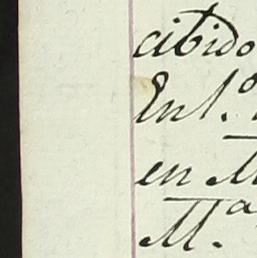 cibido
Ent.º
en M
M.ª